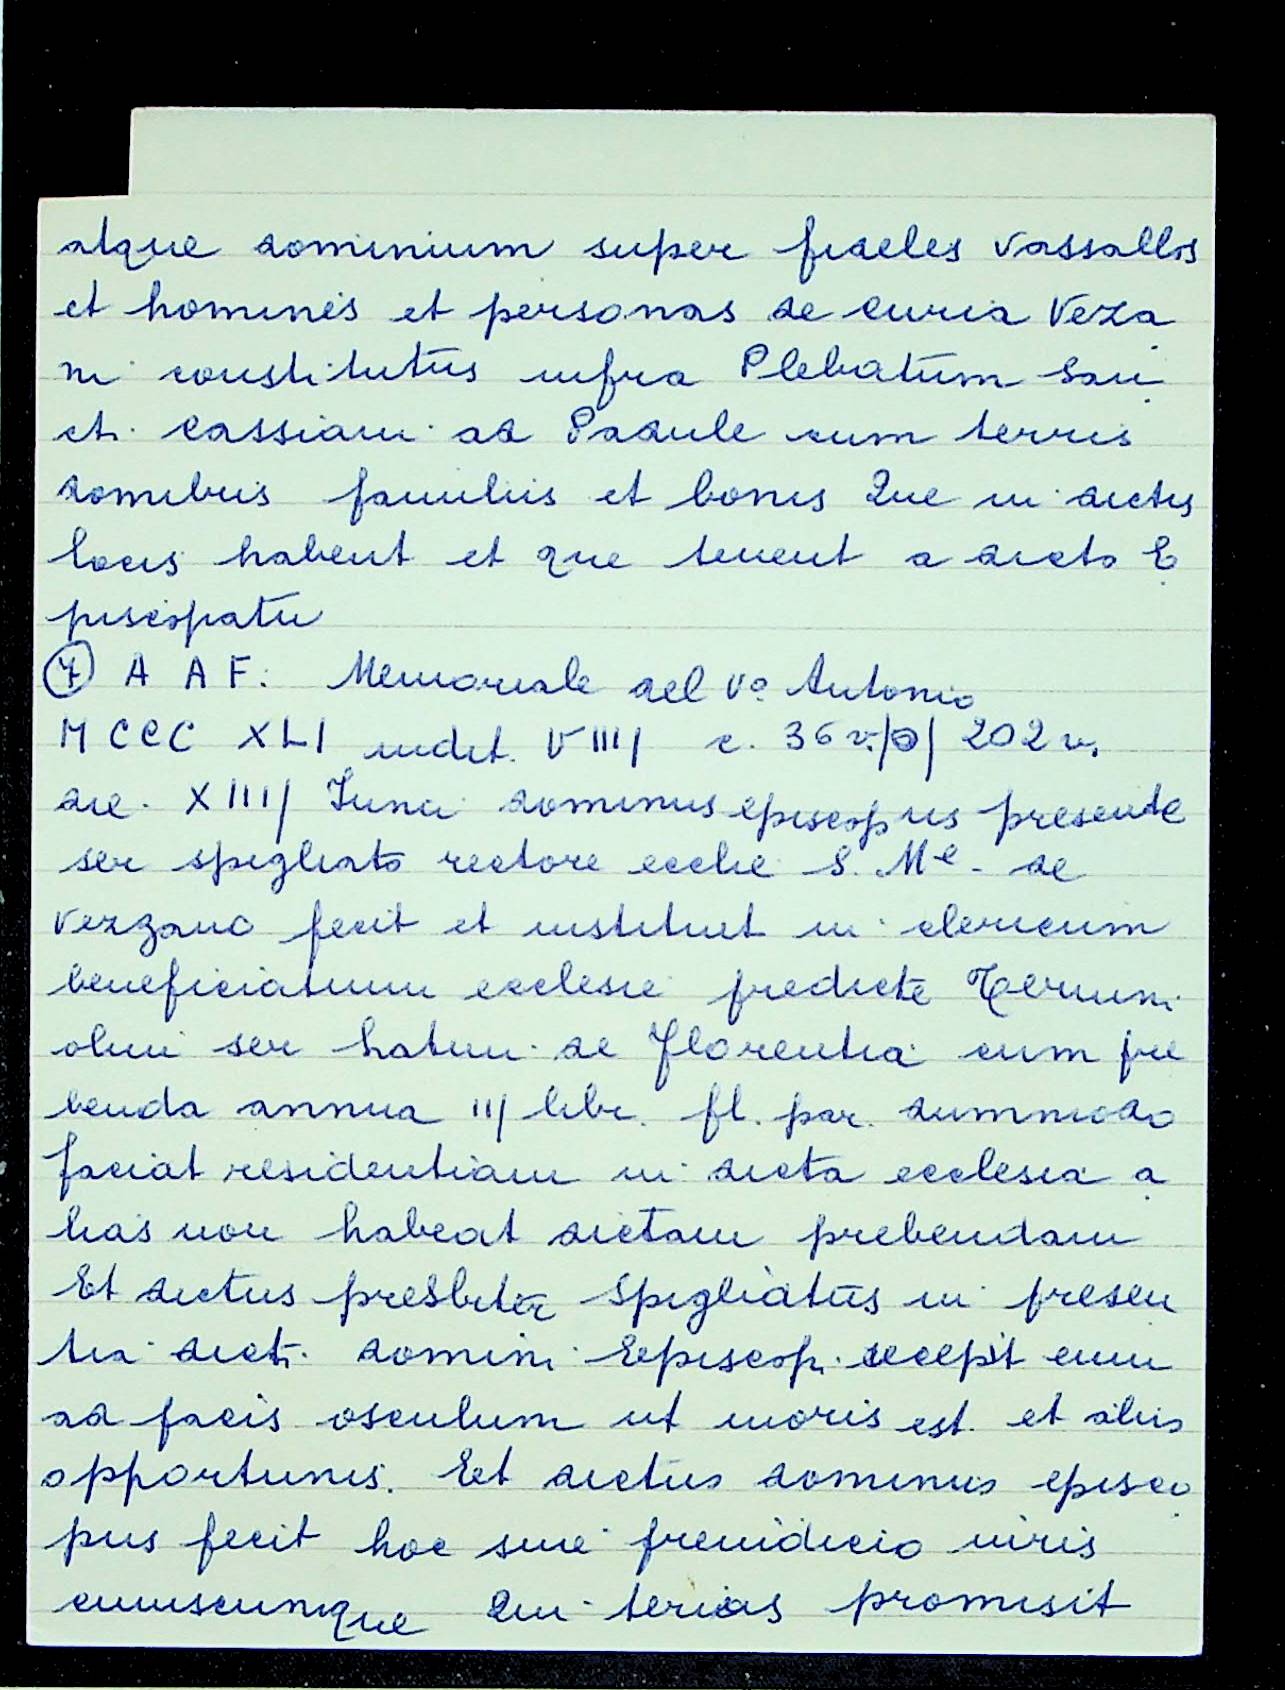 atque dominium super fideles vassallos
et homines et personas de curia Veza
ni constitutus infra Plebatum San
cti Cassiani ad Padule cum terris
domibus familiis et bonis Que in dictis
locis habent et que tenent a dicto E
piscopatu
7 A A F. Memoriale del Vo Antonio
M CCC XLI indit. VIIII c. 36 v./ 202 v.
die XIIII Junii dominus episcopus presente
ser spigliato rectore ecclie S. Me. de
Vezzano fecit et instituit in clericum
beneficiatum ecclesie predicte
olim ser hatini de Florentia cum pre
benda annua III libr. fl. par. dummodo
faciat residentiam in dicta ecclesia a
lias non habeat dictam prebendam
Et dictus presbiter Spigliatus in presen
tia dicti domini Episcopi recepit eum
ad pacis osculum ut moris est et aliis
opportunis. Et dictus dominus episco
pus fecit hoc sine preiudicio iuris
cuiuscumque Qui terias promisit